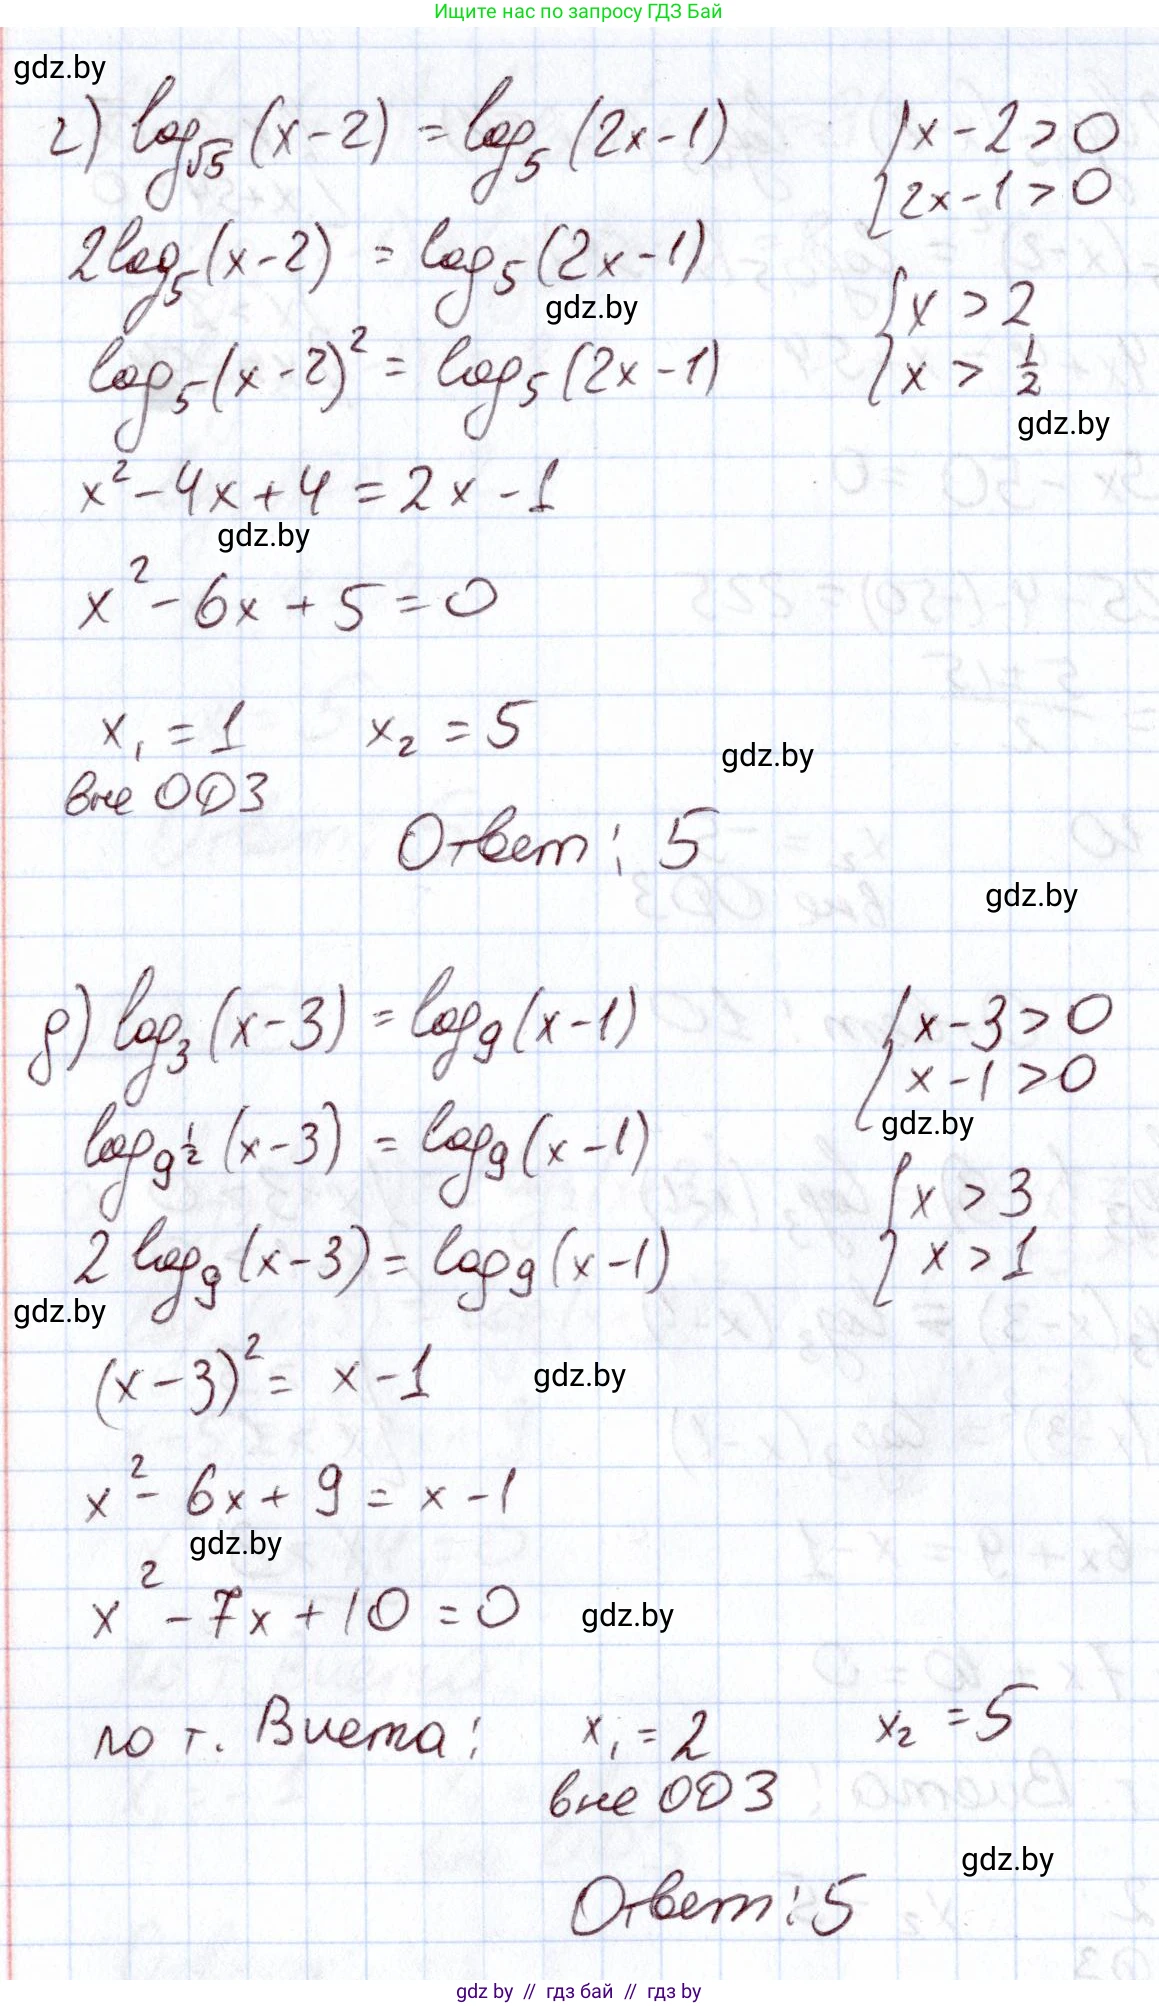 Ищите нас по запросу ГДЗ Бай
gdz.by
г) log_√5 (x-2) = log_5 (2x-1) {x-2>0
{2x-1>0
2log_5 (x-2) = log_5 (2x-1)
gdz.by
{x > 2
log_5 (x-2)² = log_5 (2x-1) {x > 1/2
gdz.by
x²-4x+4 = 2x-1
gdz.by
x²-6x+5=0
x₁ = 1 x₂ = 5
gdz.by
вне ОДЗ
Ответ: 5
gdz.by
д) log_3 (x-3) = log_9 (x-1) {x-3>0
{x-1>0
gdz.by
log_9^1/2 (x-3) = log_9 (x-1)
{x > 3
2 log_9 (x-3) = log_9 (x-1) {x > 1
gdz.by
(x-3)² = x-1
gdz.by
x²- 6x+ 9 = x-1
gdz.by
x² - 7x + 10 = 0
gdz.by
по т. Виета: x₁ = 2 x₂ = 5
вне ОДЗ
gdz.by
Ответ: 5
gdz by // гдз бай // gdz by